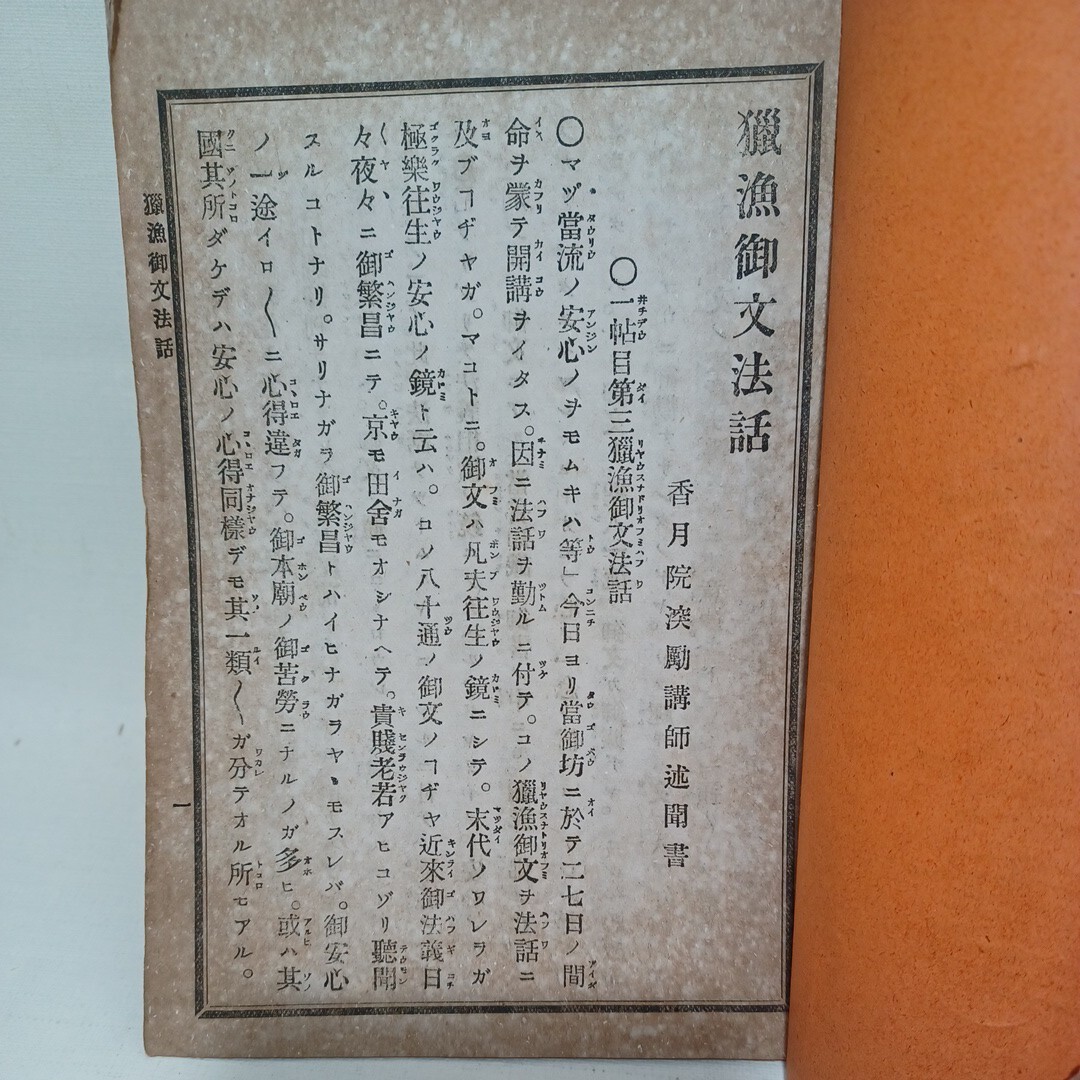 獵漁御文法話
香月院深勵講師述聞書
〇一帖目第三獵漁御文法話
〇マヅ當流ノ安心ノヲモムキハ等」今日ヨリ當御坊ニ於テ二七日ノ間
命ヲ蒙テ開講ヲイタス。因ニ法話ヲ勤ルニ付テ。コノ獵漁御文ヲ法話ニ
及ブヿヂヤガ。マコトニ。御文ハ凡夫往生ノ鏡ニシテ。末代ノワレラガ
極樂往生ノ安心ノ鏡ト云ハ。コノ八十通ノ御文ノヿヂヤ近來御法義日
々夜々ニ御繁昌ニテ。京モ田舍モオシナヘテ。貴賤老若アヒコゾリ聽聞
スルコトナリ。サリナガラ御繁昌トハイヒナガラヤヽモスレバ。御安心
ノ一途イロ〱ニ心得違フテ。御本廟ノ御苦勞ニナルノガ多ヒ。或ハ其
國其所ダケデハ安心ノ心得同樣デモ其一類〱ガ分テオル所モアル。
獵漁御文法話
一